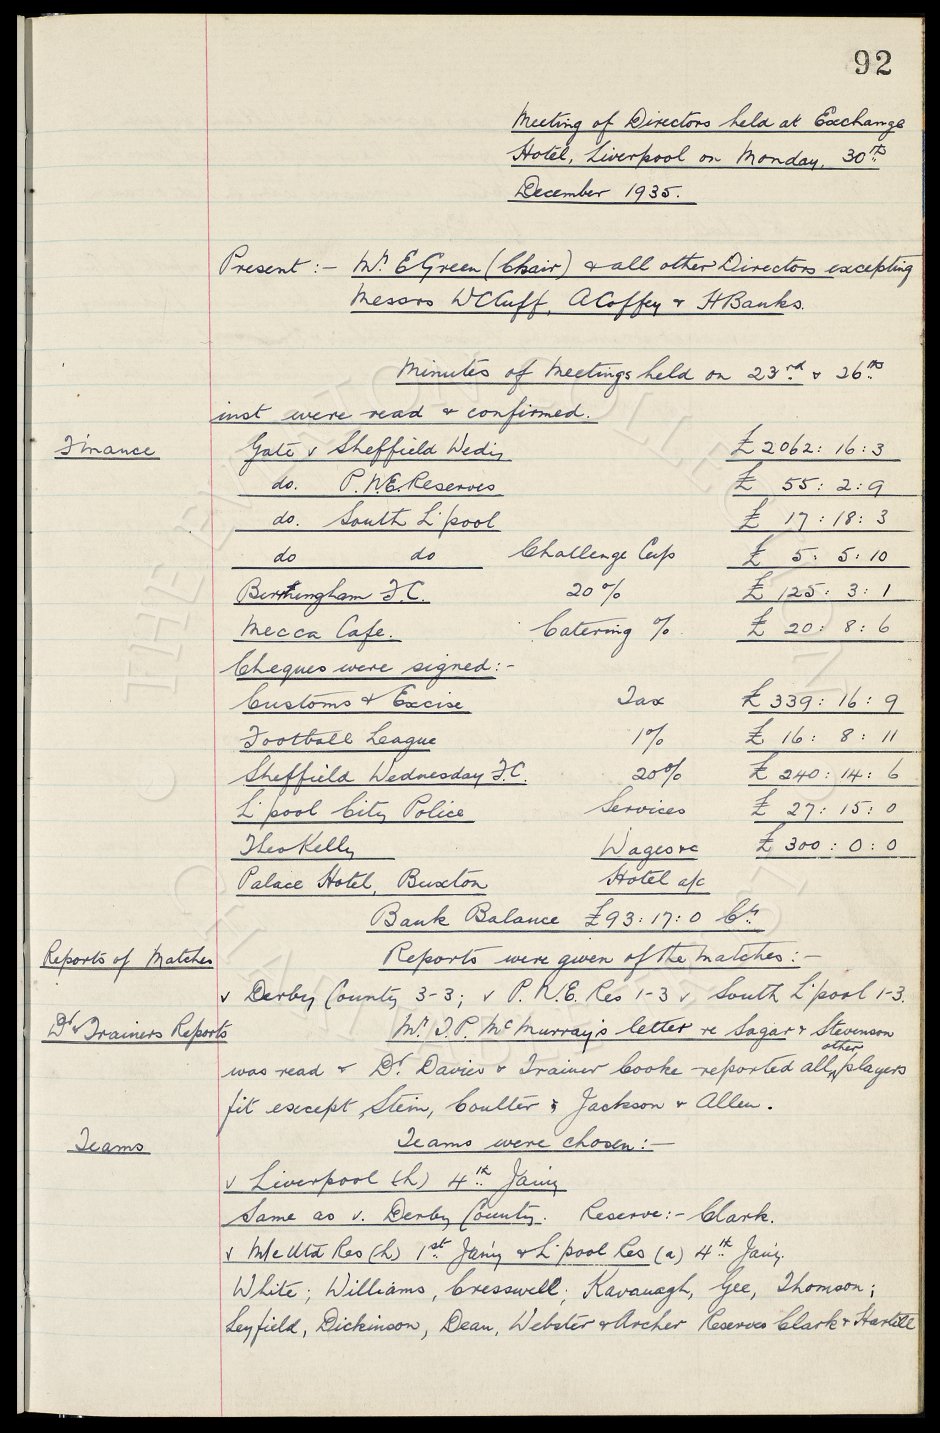 92
Meeting of Directors held at Exchange
Hotel, Liverpool on Monday, 30th
December 1935.
Present :- Mr. E Green (Chair) & all other Directors excepting
Messrs W C Cuff, A Coffey & H Banks.
Minutes of Meetings held on 23rd & 26th
inst were read & confirmed.
Finance Gate v Sheffield Wedy £2062: 16: 3
do. P.N.E. Reserves £ 55: 2: 9
do. South L'pool £ 17: 18: 3
do do Challenge Cup £ 5: 5: 10
Birmingham F.C. 20% £125: 3: 1
Mecca Cafe. Catering % £ 20: 8: 6
Cheques were signed:-
Customs & Excise Tax £339: 16: 9
Football League 1% £ 16: 8: 11
Sheffield Wednesday F.C. 20% £240: 14: 6
L'pool City Police Services £ 27: 15: 0
Theo Kelly Wages &c £300: 0: 0
Palace Hotel, Buxton Hotel a/c
Bank Balance £93: 17: 0 Cr.
Reports of Matches Reports were given of the matches:-
v Derby County 3-3; v P.N.E. Res 1-3 v South L'pool 1-3.
Dr & Trainers Reports Mr. T.P. McMurray's letter re Sagar & Stevenson
was read & Dr. Davies & Trainer Cooke reported all other players
fit except Stein, Coulter, Jackson & Allen.
Teams Teams were chosen:-
v Liverpool (h) 4th Jany
Same as v. Derby County. Reserve:- Clark.
v M/c Utd Res (h) 1st Jany & L'pool Res (a) 4th Jany.
White; Williams, Cresswell; Kavanagh, Gee, Thomson;
Leyfield, Dickinson, Dean, Webster & Archer Reserves Clark & Hartill
© THE EVERTON COLLECTION CHARITABLE TRUST